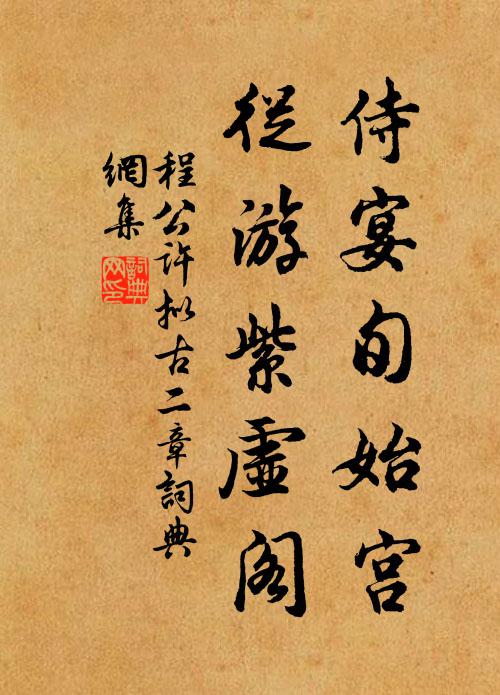 侍宴旬始宫
從游紫虚阁
程公许拟古二章詞典
網集
詞典
网印